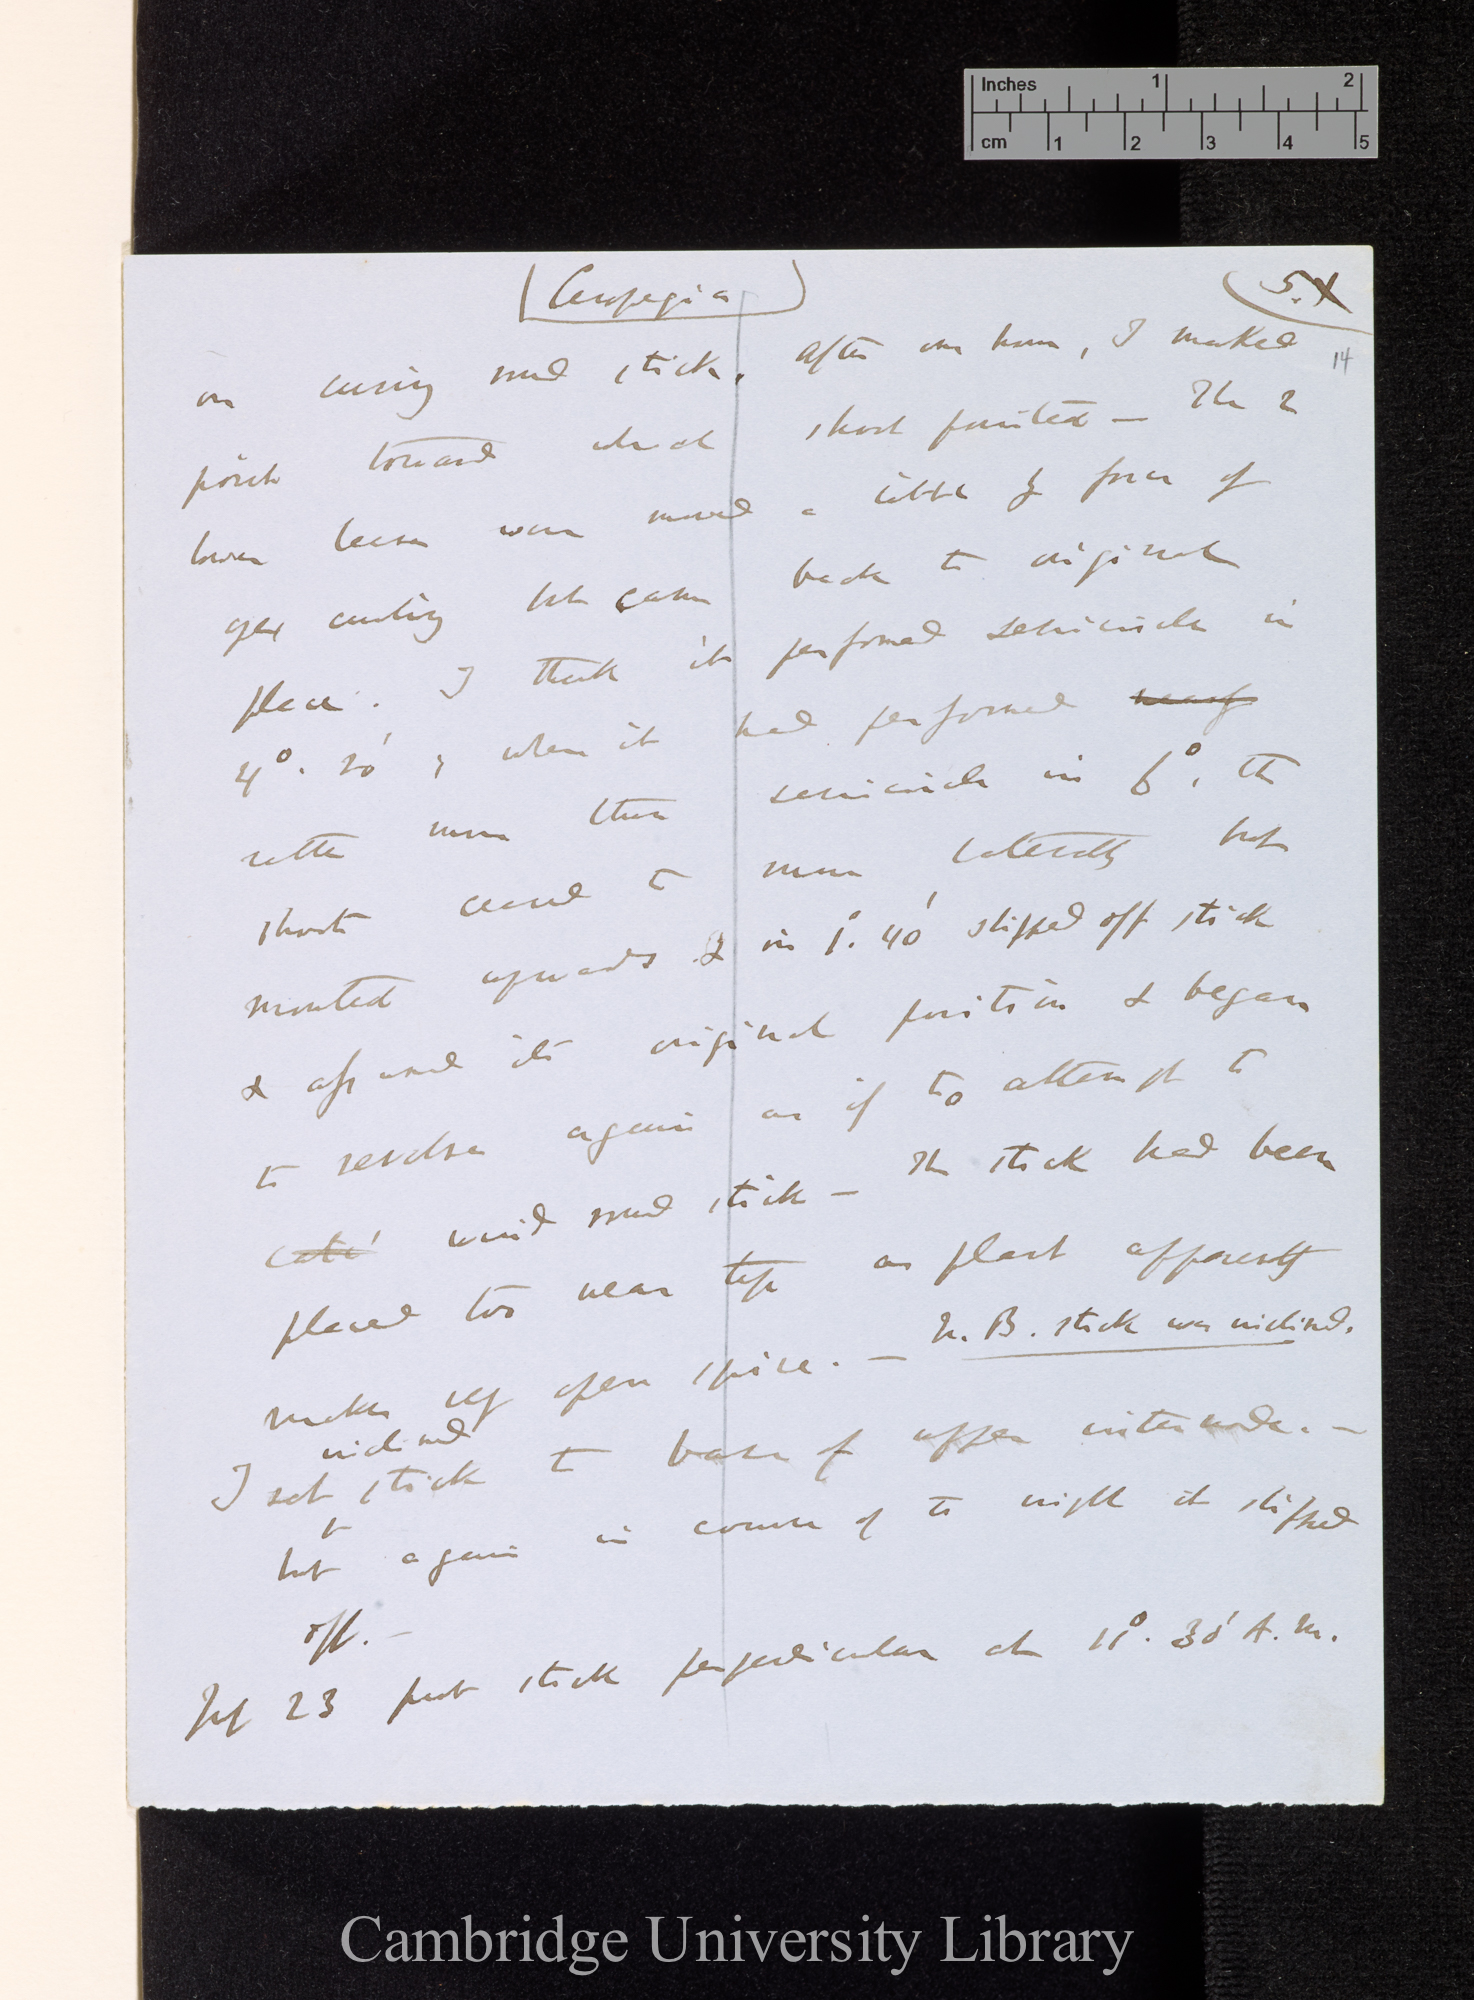 Inches 1 2
cm 1 2 3 4 5
(Ceropegia) 5. X
14
on curving round stick. After one hour, I marked
point toward which shoot pointed — The 2
lower leaves were moved a little by force of
apex curling but came back to original
place. I think it performed semicircle in
4°. 20' ; when it had performed nearly
rather more than semicircle in 6°, the
shoot ceased to move laterally but
mounted upwards & in 1°. 40' slipped off stick
& assumed its original position & began
to revolve again as if to attempt to
catch wind round stick — The stick had been
placed too near top as plant apparently
makes very open spire. — N. B. stick was inclined.
inclined
I set stick to base of upper internode. —
but again in course of to night it slipped
off. —
July 23 put stick perpendicular at 11°. 30' A.M.
Cambridge University Library